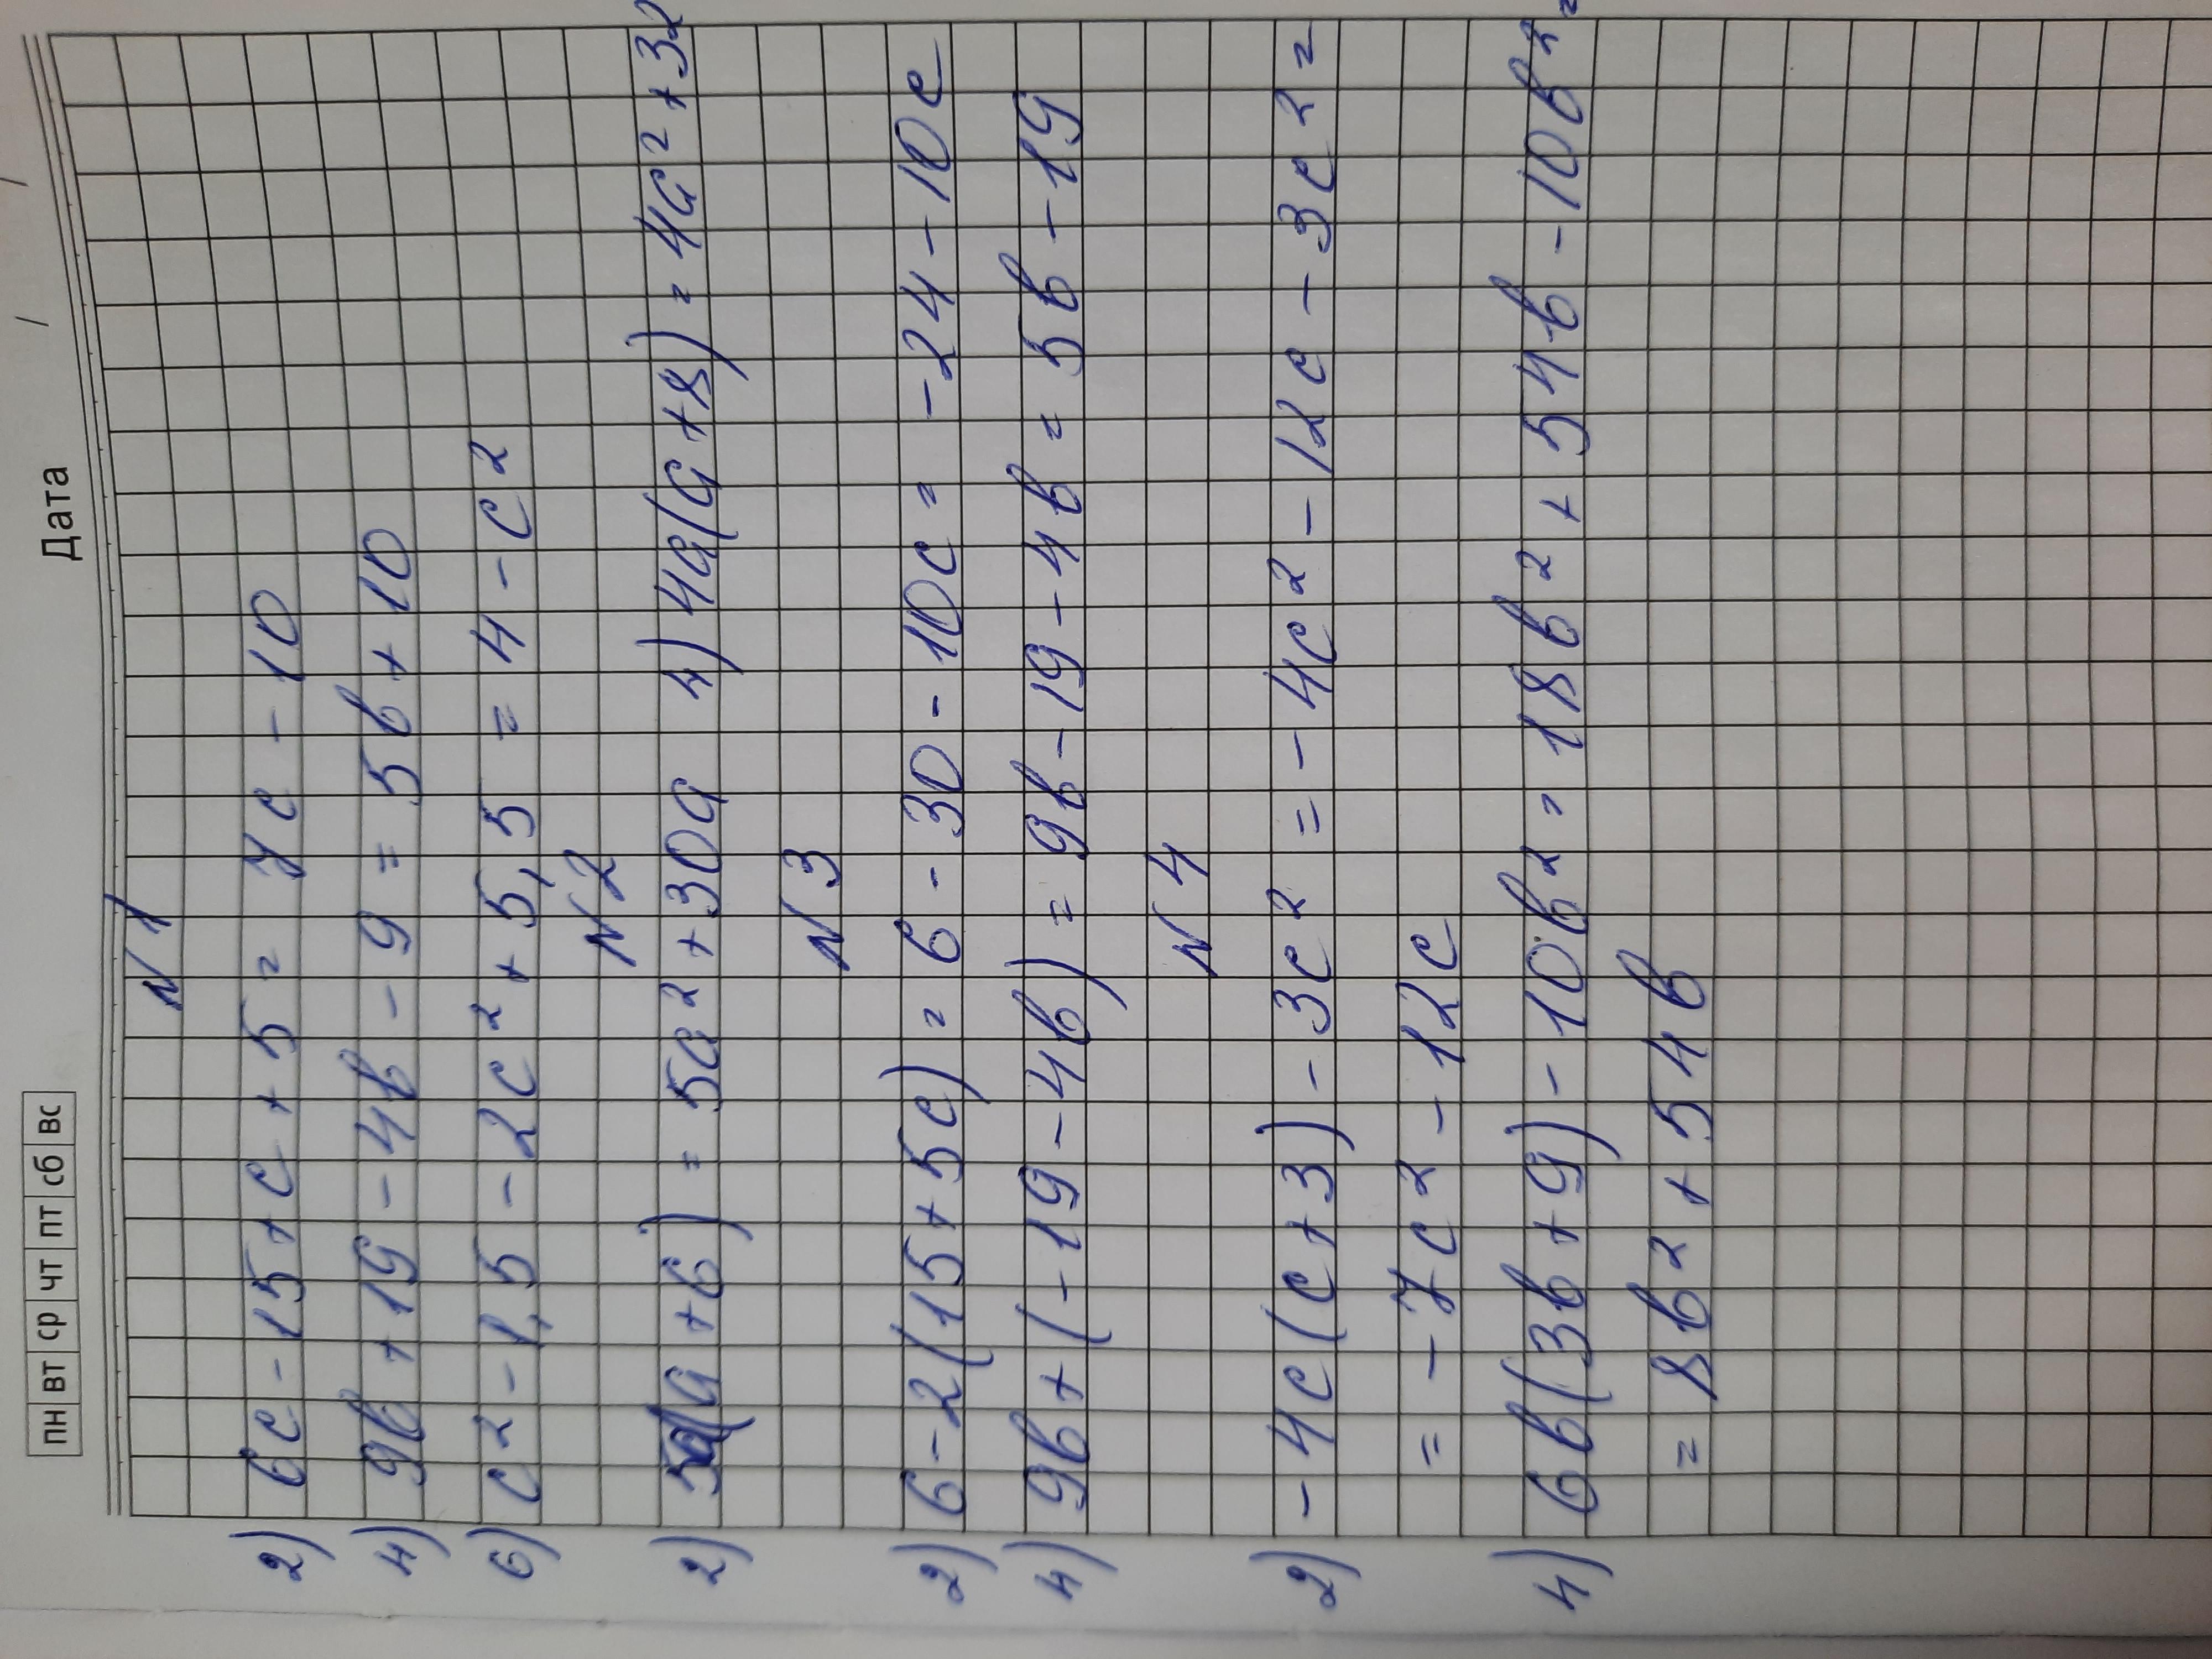 пн вт ср чт пт сб вс Дата / /
N 1
2) 6c - 15 + c + 5 = 7c - 10
4) 9b + 19 - 4b - 9 = 5b + 10
6) c² - 1,5 - 2c² + 5,5 = 4 - c²
N 2
2) 5a(a + 6) = 5a² + 30a 4) 4a(a + 8) = 4a² + 32
N 3
2) 6 - 2(15 + 5c) = 6 - 30 - 10c = -24 - 10c
4) 9b + (-19 - 4b) = 9b - 19 - 4b = 5b - 19
N 4
2) -4c(c + 3) - 3c² = -4c² - 12c - 3c² =
= -7c² - 12c
4) 6b(3b + 9) - 10b² = 18b² + 54b - 10b² =
= 8b² + 54b